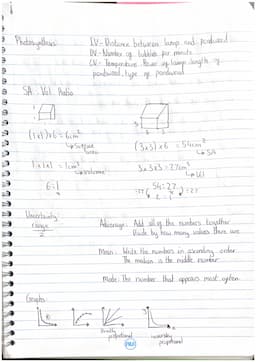 Photosynthesis:
IV- Distance between lamp and pondweed
DV- Number of bubbles per minute
CV- Temperature, Power of lamp, length of
pondweed, type of pondweed
SA : Vol Ratio
1
3
3
3
(1x1)x6 = 6cm²
↳ Surface
area
(3x3) x 6 = 54cm²
↳ SA
1x1x1 = 1cm³
↳ Volume
3x3x3 = 27cm³
↳ Vol
6:1
54:27
÷27
÷27
2 : 1
Uncertainty:
range
2
Average: Add all of the numbers together
Divide by how many values there are
Mean: Write the numbers in ascending order.
The median is the middle number
Mode: The number that appears most often
Graphs:
Directly
proportional
inversely
proportional